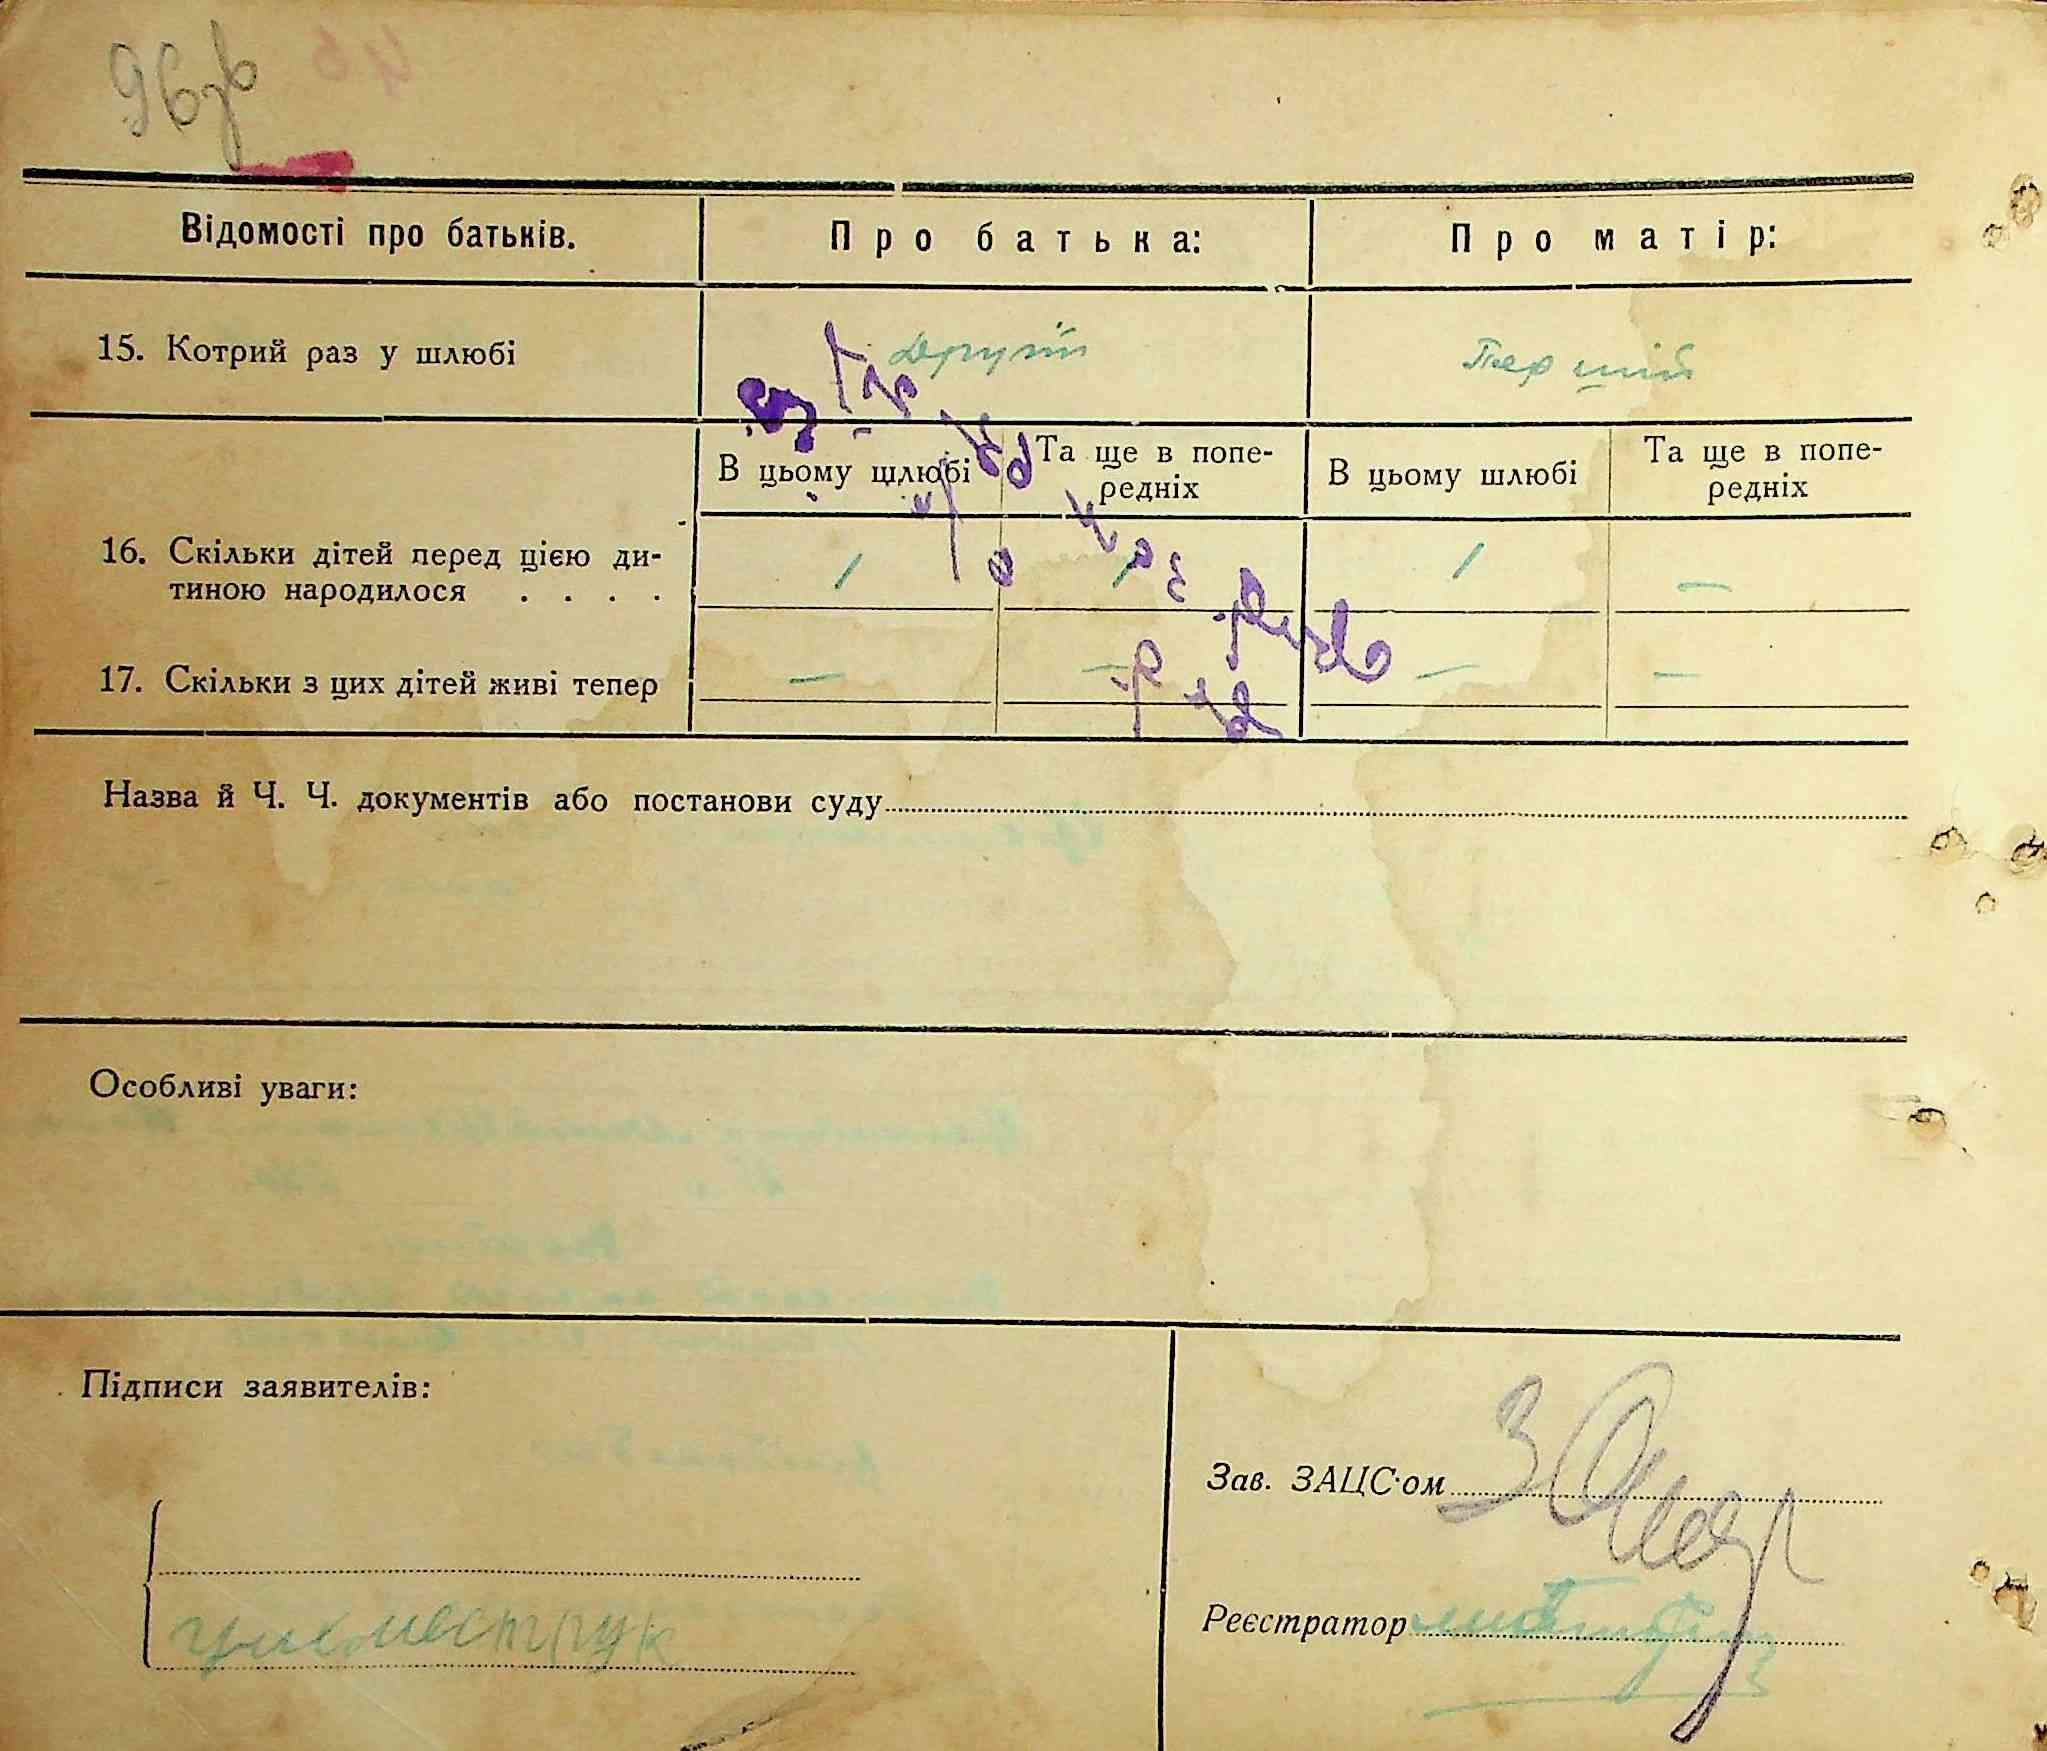 96зв
Відомості про батьків.
Про батька:
Про матір:
15. Котрий раз у шлюбі
Другий
Перший
В цьому шлюбі
Та ще в попе-
редніх
В цьому шлюбі
Та ще в попе-
редніх
16. Скільки дітей перед цією ди-
тиною народилося . . . .
1
1
1
—
17. Скільки з цих дітей живі тепер
—
—
—
—
Назва й Ч. Ч. документів або постанови суду
Особливі уваги:
Підписи заявителів:
Зав. ЗАЦС·ом
Реєстратор